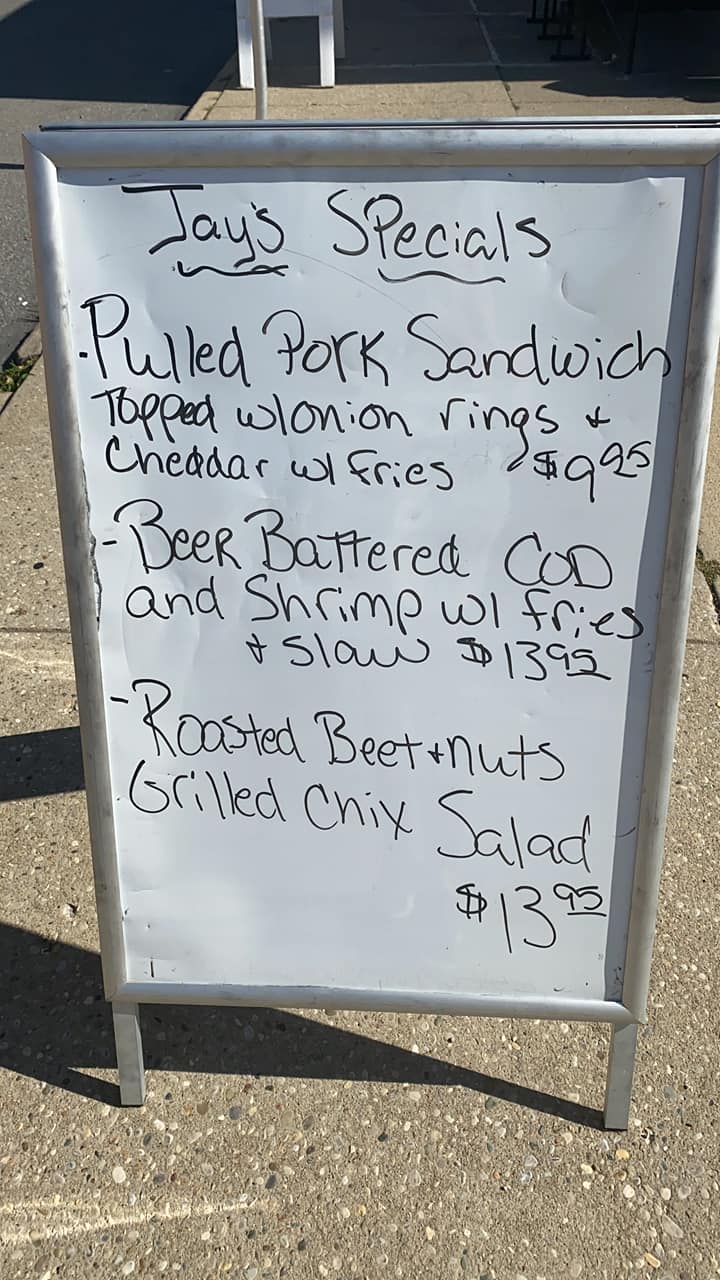 Jay's Specials
-Pulled Pork Sandwich
Topped w/onion rings +
Cheddar w/ Fries $9.95
-Beer Battered COD
and Shrimp w/ fries
+ Slaw $13.95
-Roasted Beet+nuts
Grilled Chix Salad
$13.95